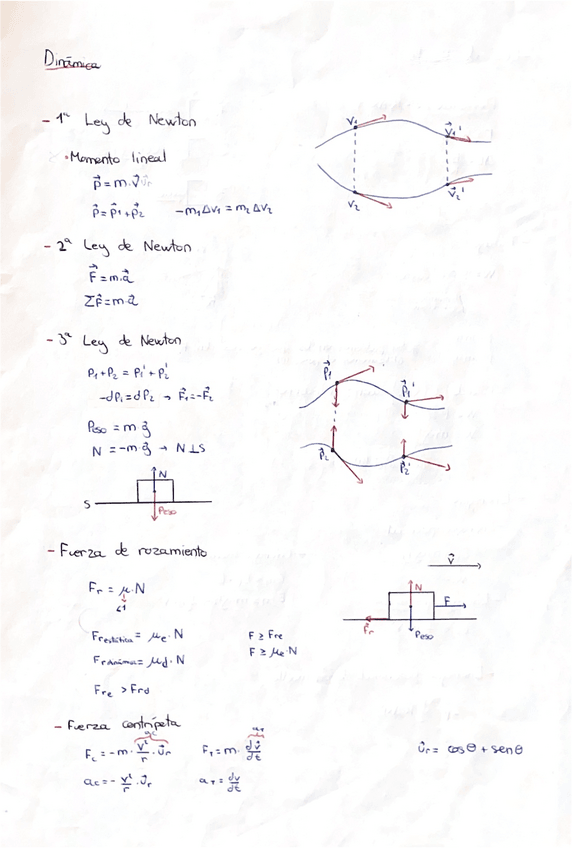 Dinámica
- 1ª Ley de Newton
• Momento lineal
p⃗ = m·v⃗
p⃗ = p⃗₁ + p⃗₂    -m₁Δv₁ = m₂Δv₂
V₁ V⃗₁'
V₂ V⃗₂'
- 2ª Ley de Newton
F⃗ = m.a⃗
ΣF⃗ = m.a⃗
- 3ª Ley de Newton
P₁ + P₂ = P₁' + P₂'
-dP₁ = dP₂ → F⃗₁ = -F⃗₂
Peso = m g⃗
N = -m g⃗ → N ⊥ S
P⃗₁ P⃗₁'
P⃗₂ P⃗₂'
N
S
Peso
- Fuerza de rozamiento
Fr = μ·N
<1
Frestática = μe·N    F ≥ Fre
Frdinámica = μd·N    F ≥ μe·N
Fre > Frd
V⃗
N
F
Fr
Peso
- Fuerza centrípeta
ac aT
Fc = -m · v²/r · u⃗r    FT = m · dv⃗/dt    u⃗r = cosθ + senθ
ac = - v²/r · u⃗r    aT = dv/dt